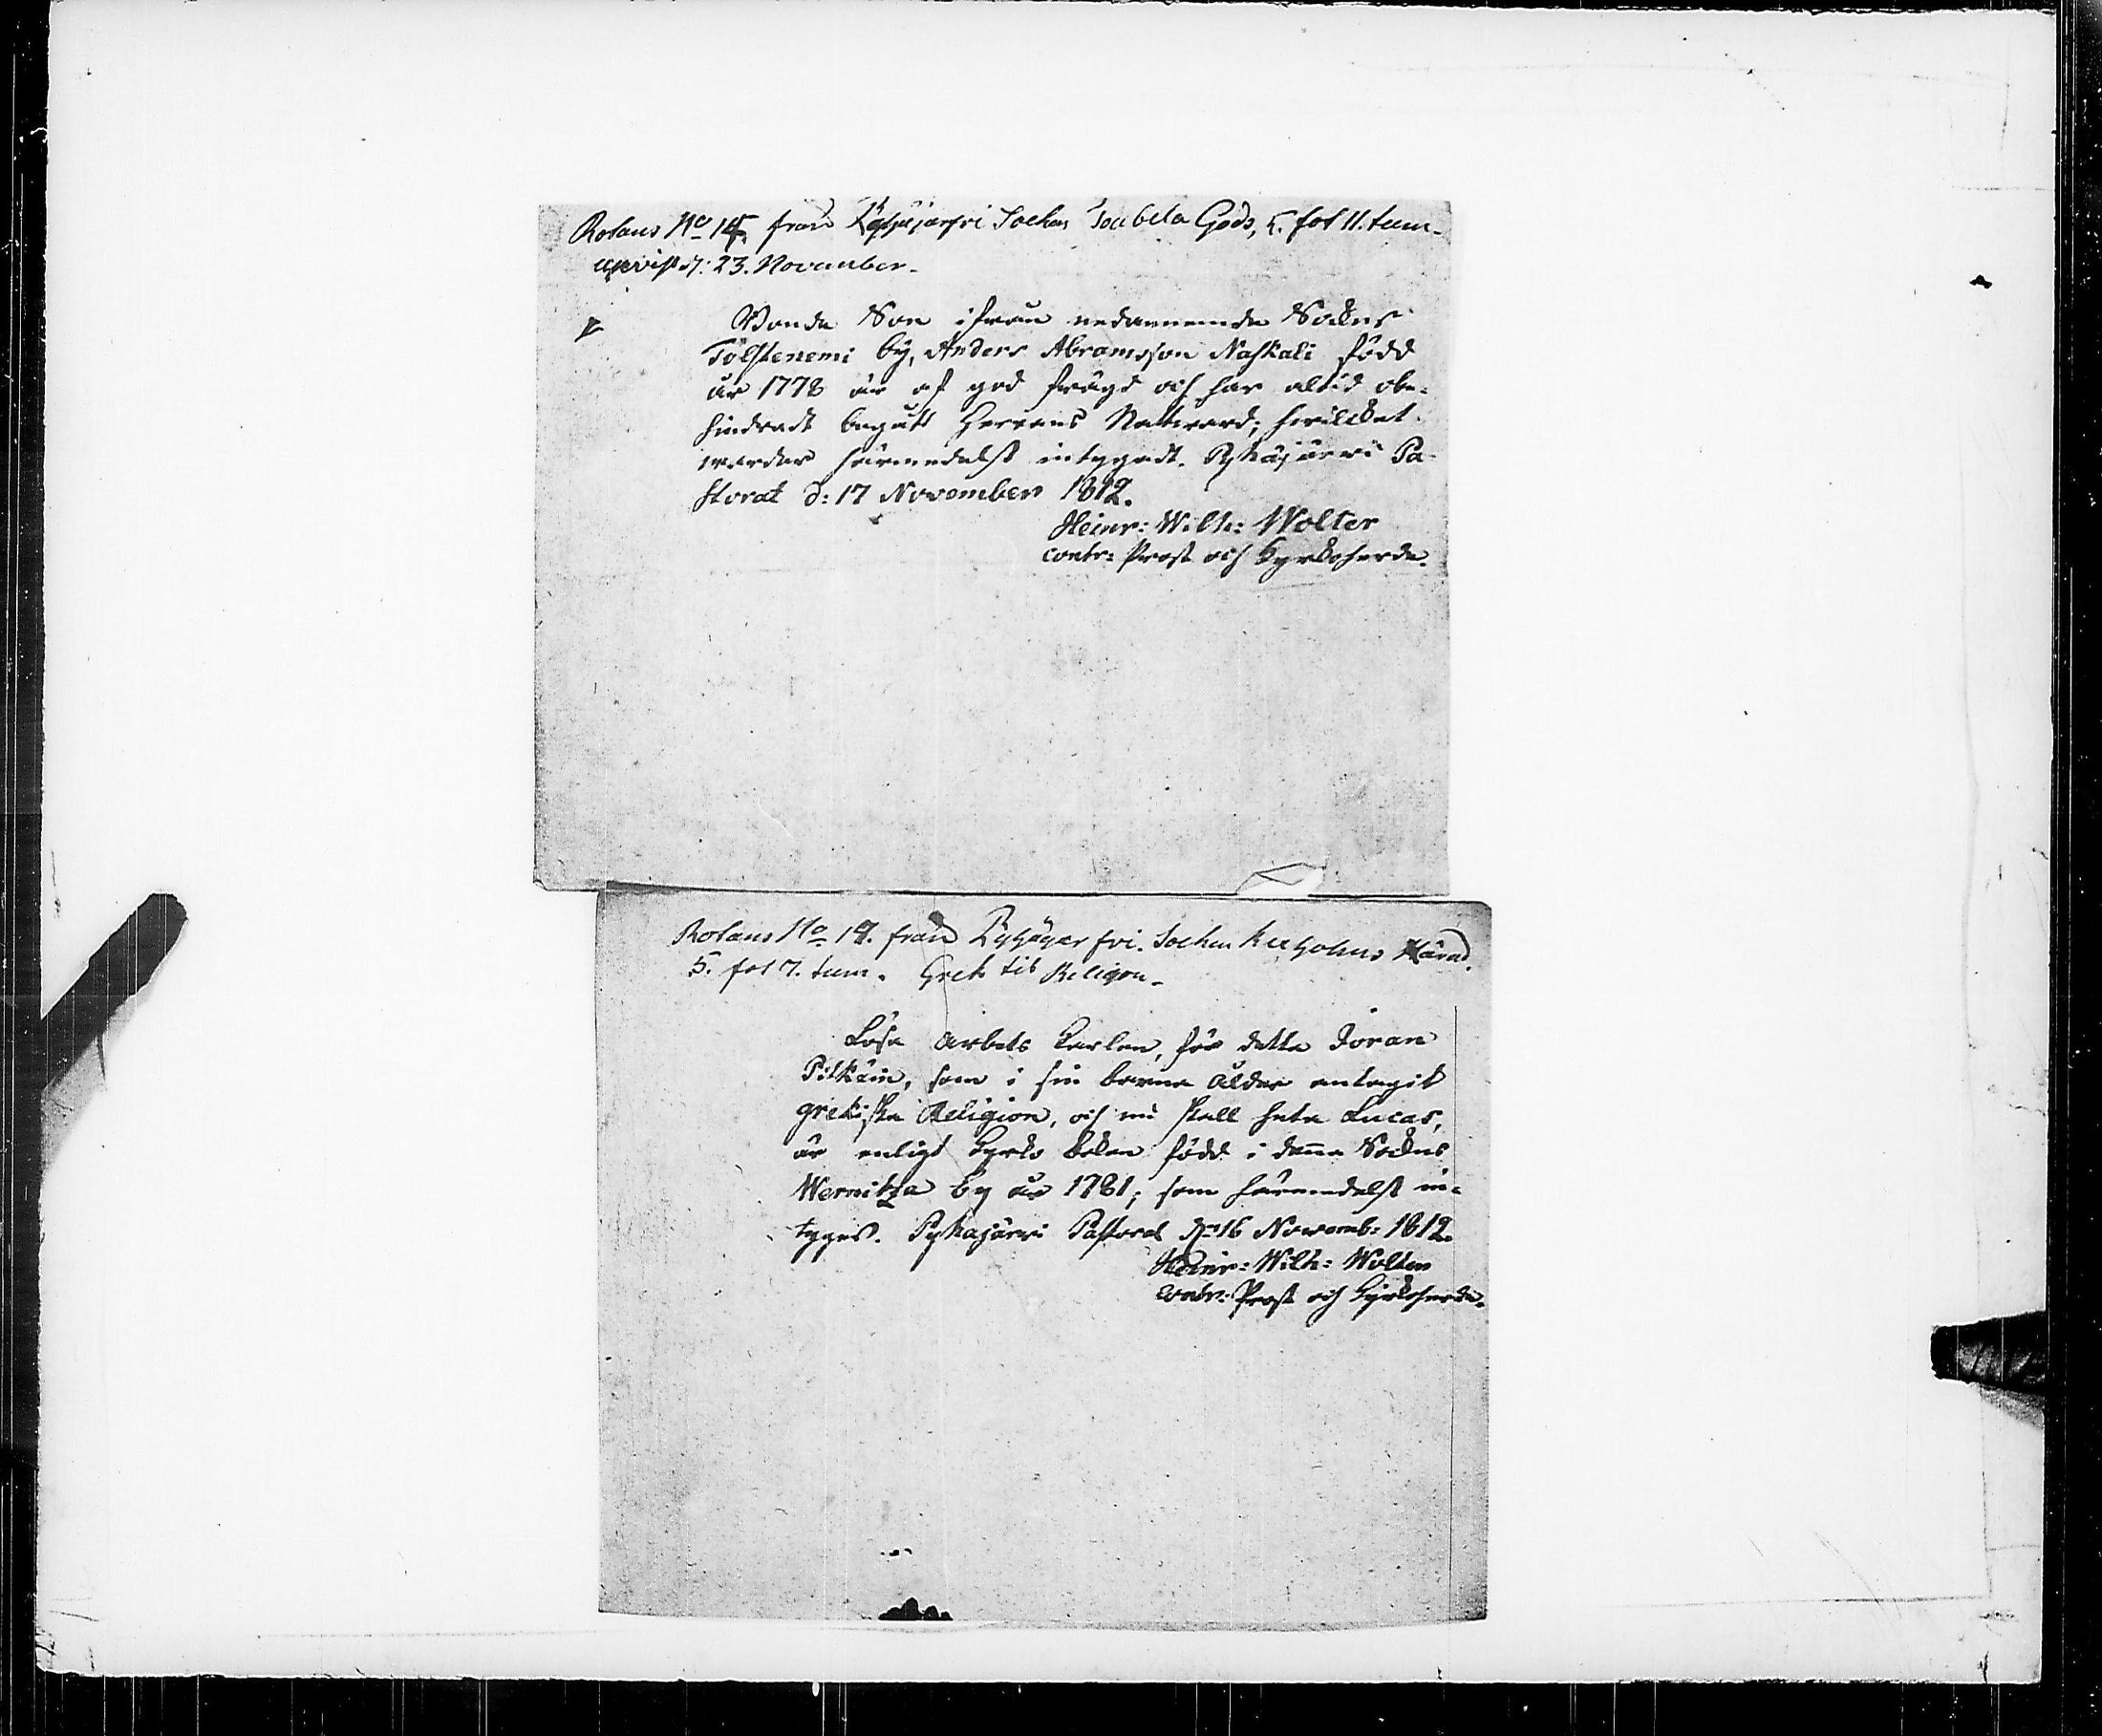 Rotans No 14. från Pyhäjerfvi Sochen Isabela Gods, 5. fot 11. tum.
upvist d: 23. November.
Bonde Son ifrån nedannemde Sockns
Tölstenemi by, Anders Abramsson Naskali född
år 1778 är af god frägd och har altid obe-
hindradt begått Herrans Nattward; hwilcket
warder härmedelst intygadt. Pyhäjärwi Pa-
storat d: 17 November 1812.
Heinr: Wilh: Wolter
contr: Prost och Kyrkoherde.
Rotans No 19. från Pyhäyerfvi. Sochen Kexholms Härad.
5. fot 7. tum. Grek till Religion.
Löse arbets Karlen, för detta Jöran
Pitkäin, som i sin barna ålder antagit
grekiska Religion, och nu skall heta Lucas,
är enligt Kyrko boken född i denna Sockns
Wernitza by år 1781; som härmedelst in-
tyges. Pyhäjärwi Pastorat d: 16 Novemb: 1812.
Heinr: Wilh: Wolter
contr: Prost och Kyrkoherde.